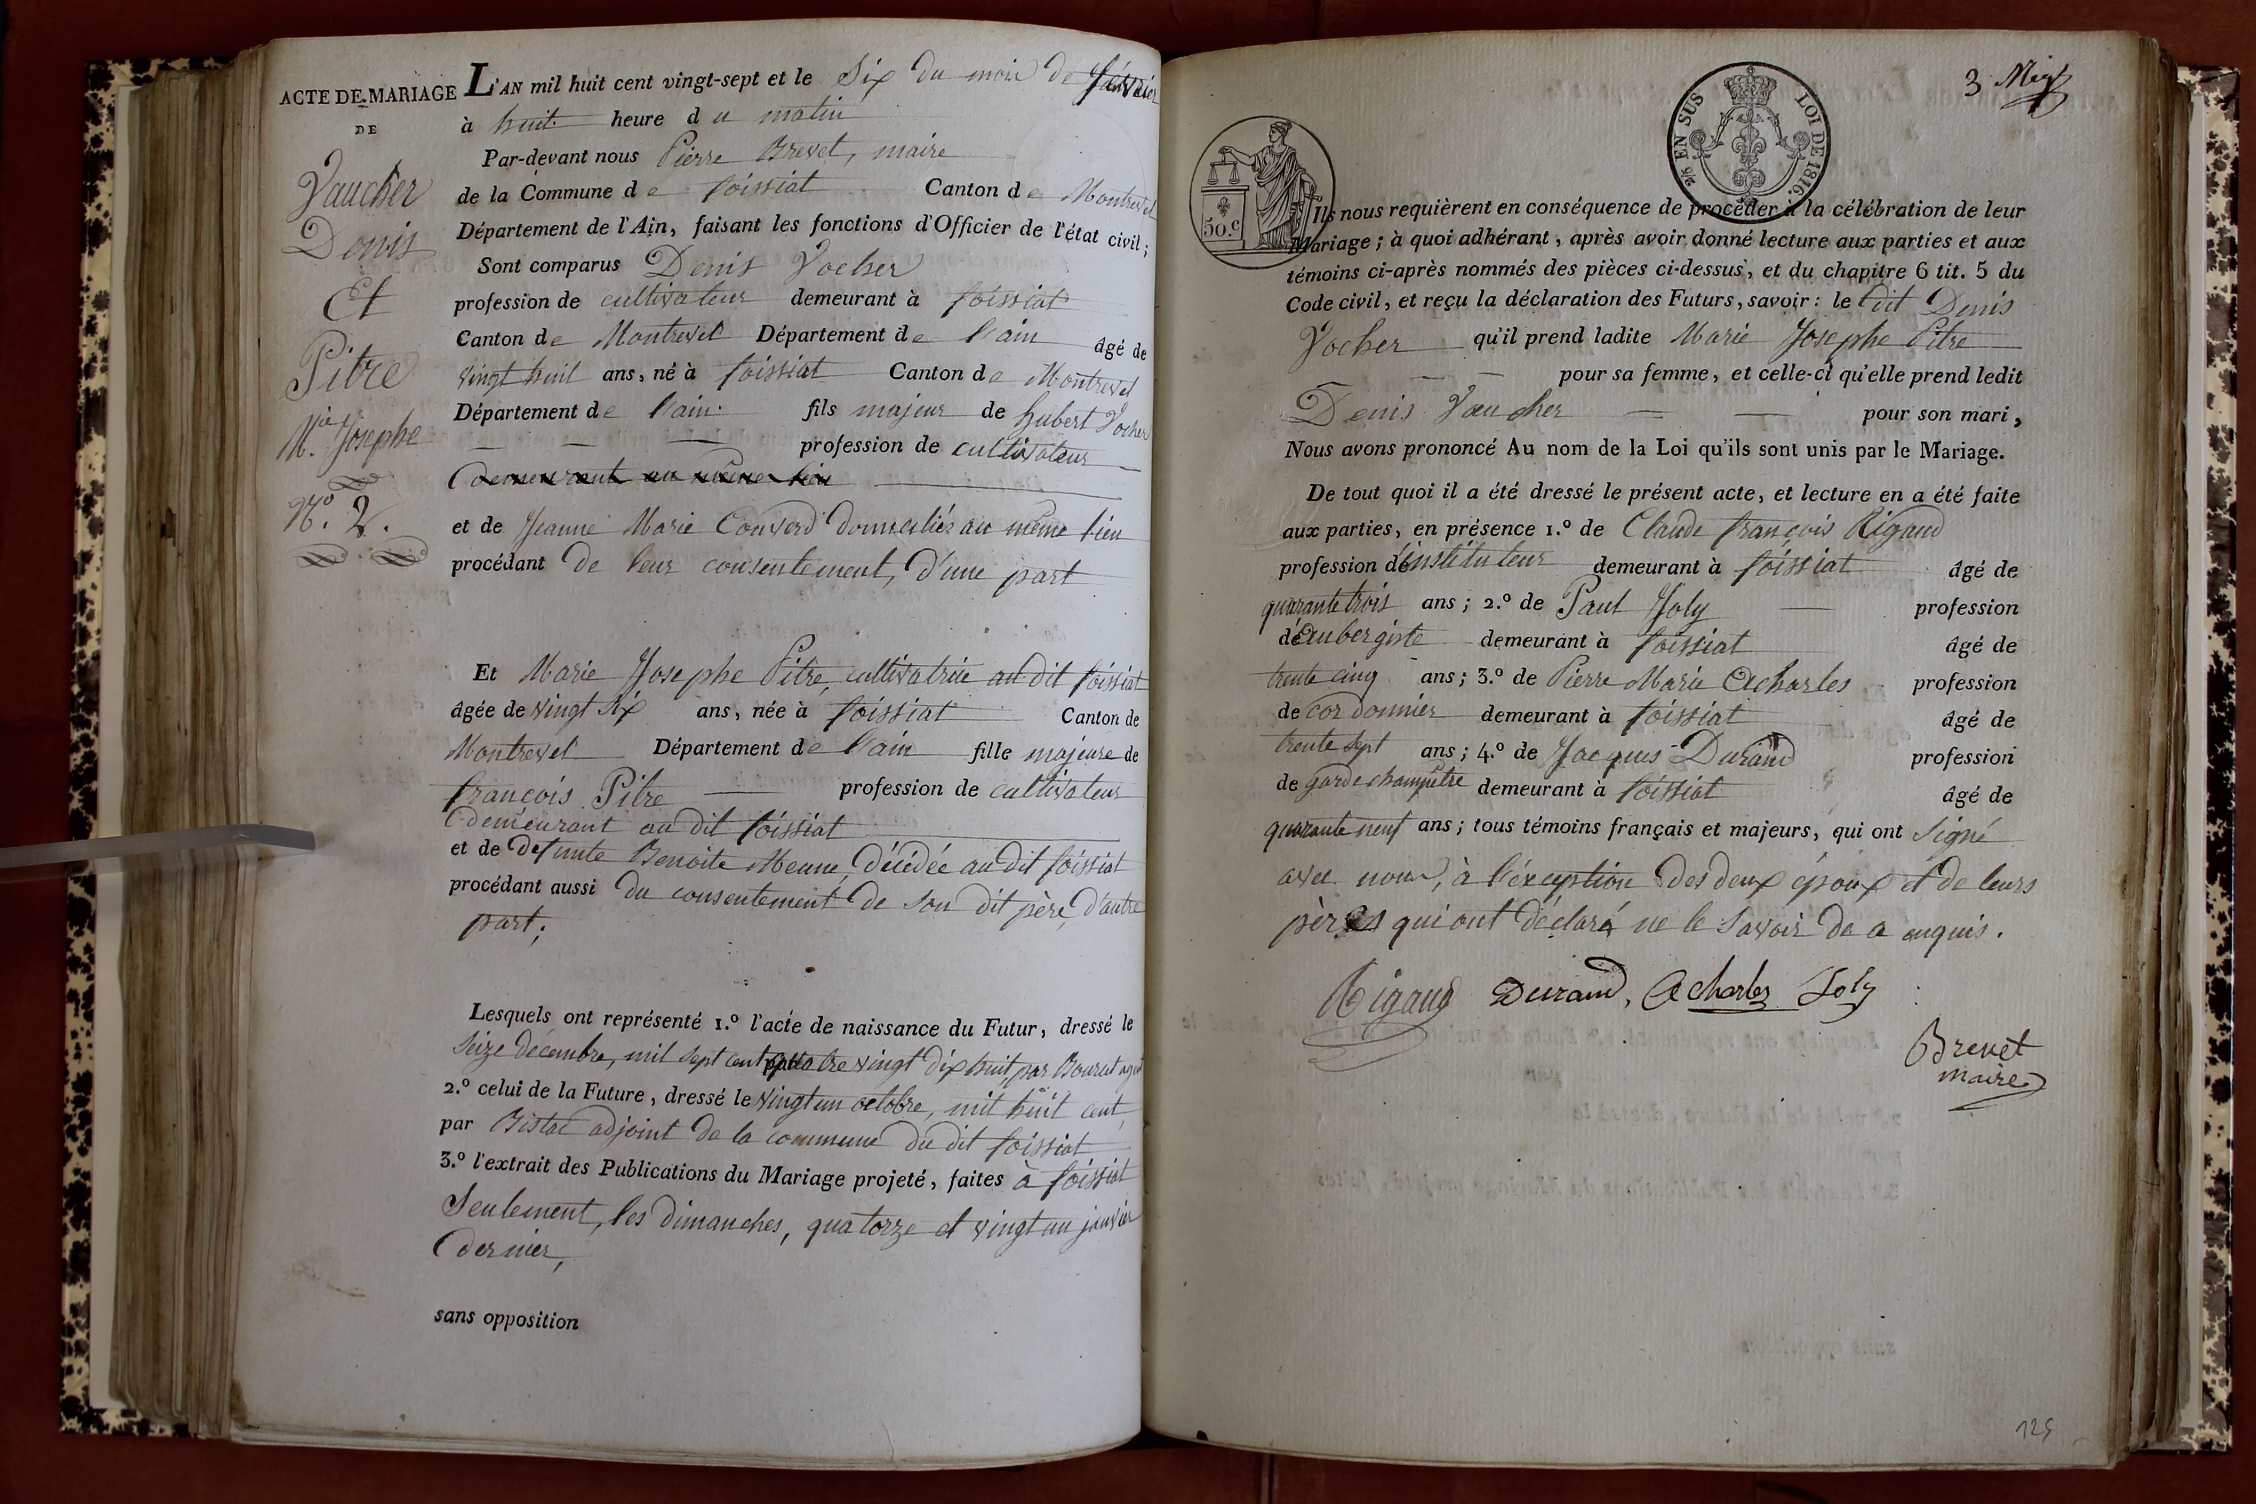 ACTE DE MARIAGE
DE
Vaucher
Denis
Et
Pitre
M.ie Josephe
N.º 2.
L'AN mil huit cent vingt-sept et le Six du mois de février
à huit heure du matin
Par-devant nous Pierre Brevet, maire
de la Commune de foissiat Canton de Montrevel
Département de l'Ain, faisant les fonctions d'Officier de l'état civil;
Sont comparus Denis Vocher
profession de cultivateur demeurant à foissiat
Canton de Montrevel Département de l'ain âgé de
vingt huit ans, né à foissiat Canton de Montrevel
Département de l'ain. fils majeur de hubert Vocher
profession de cultivateur
demeurant au même lieu
et de Jeanne Marie Convard domiciliés au même lieu
procédant de leur consentement, d'une part
Et Marie Josephe Pitre, cultivatrice au dit foissiat
âgée de vingt six ans, née à foissiat Canton de
Montrevel Département de l'ain fille majeure de
françois Pitre profession de cultivateur
demeurant au dit foissiat
et de defunte Benoite Meune, décédée au dit foissiat
procédant aussi du consentement de son dit père, d'autre
part;
Lesquels ont représenté 1.º l'acte de naissance du Futur, dressé le
seize décembre, mil sept cent quatre vingt dix huit, par Bourcet agent
2.º celui de la Future, dressé le vingt un octobre, mil huit cent,
par Bistac adjoint de la commune du dit foissiat
3.º l'extrait des Publications du Mariage projeté, faites à foissiat
Seulement, les dimanches, quatorze et vingt un janvier
dernier,
sans opposition
3 Mig
2/5 EN SUS LOI DE 1816.
50.c
Ils nous requièrent en conséquence de procéder à la célébration de leur
Mariage; à quoi adhérant, après avoir donné lecture aux parties et aux
témoins ci-après nommés des pièces ci-dessus, et du chapitre 6 tit. 5 du
Code civil, et reçu la déclaration des Futurs, savoir: le dit Denis
Vocher qu'il prend ladite Marie Josephe Pitre
pour sa femme, et celle-ci qu'elle prend ledit
Denis Vaucher pour son mari,
Nous avons prononcé Au nom de la Loi qu'ils sont unis par le Mariage.
De tout quoi il a été dressé le présent acte, et lecture en a été faite
aux parties, en présence 1.º de Claude françois Rigaud
profession d'instituteur demeurant à foissiat âgé de
quarante trois ans; 2.º de Paul Joly profession
d'aubergiste demeurant à foissiat âgé de
trente cinq ans; 3.º de Pierre Marie Acharles profession
de cordonnier demeurant à foissiat âgé de
trente sept ans; 4.º de Jacques Durand profession
de garde champêtre demeurant à foissiat âgé de
quarante neuf ans; tous témoins français et majeurs, qui ont signé
avec nous, à l'éxception des deux époux et de leurs
pères qui ont déclaré ne le savoir de ce enquis.
Rigaud Durand, Acharles Joly
Brevet
maire
125